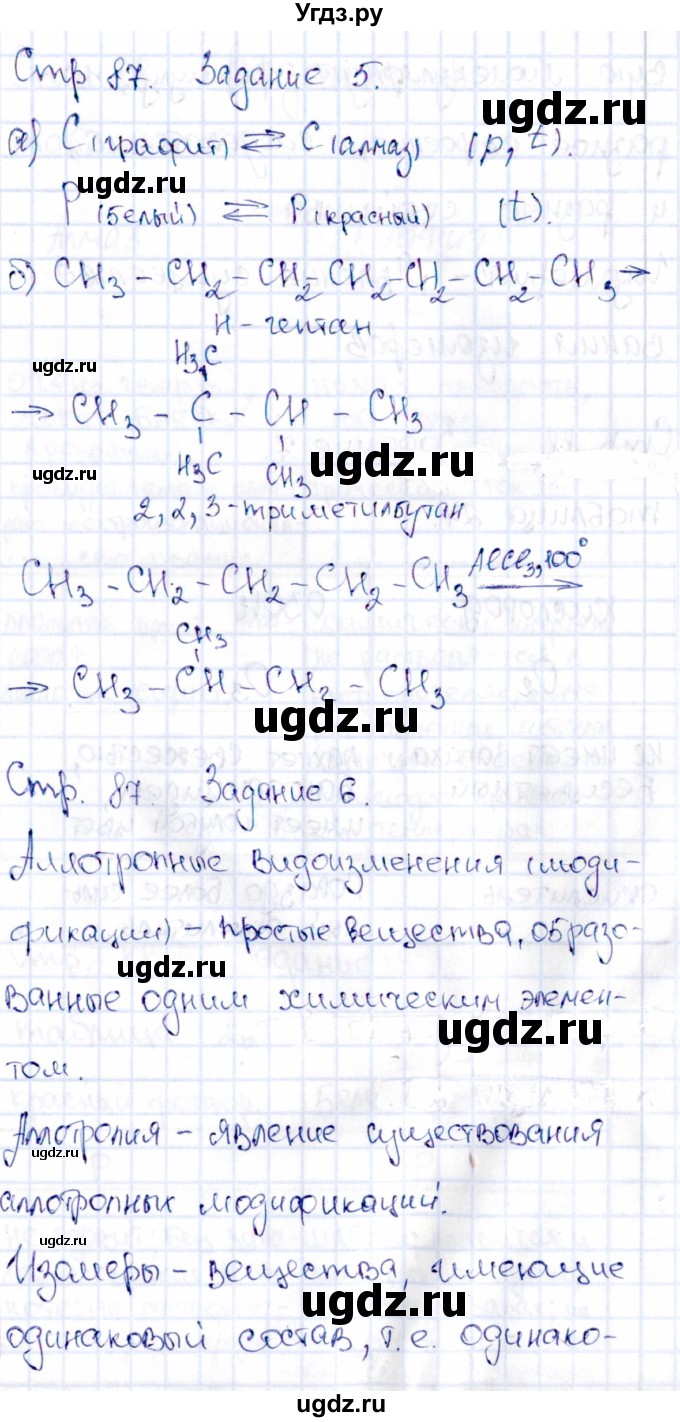 Угдз.ру
Стр 87. Задание 5.
ugdz.ru
а) C(графит) ⇄ C(алмаз) (p, t).
ugdz.ru
P(белый) ⇄ P(красный) (t).
б) CH3 – CH2 – CH2 – CH2 – CH2 – CH2 – CH3 →
Н – гептан
H3C
ugdz.ru
→ CH3 – C – CH – CH3
ugdz.ru
ugdz.ru
H3C CH3
2, 2, 3 – триметилбутан
CH3 – CH2 – CH2 – CH2 – CH3 AlCl3, 100°
CH3
→ CH3 – CH – CH2 – CH3
ugdz.ru
Стр. 87. Задание 6.
ugdz.ru
Аллотропные видоизменения (моди-
фикации) – простые вещества, образо-
ugdz.ru
ванные одним химическим элемен-
ugdz.ru
том.
Аллотропия – явление существования
ugdz.ru
аллотропных модификаций.
ugdz.ru
Изомеры – вещества, имеющие
ugdz.ru
одинаковый состав, т.е. одинако-
ugdz.ru